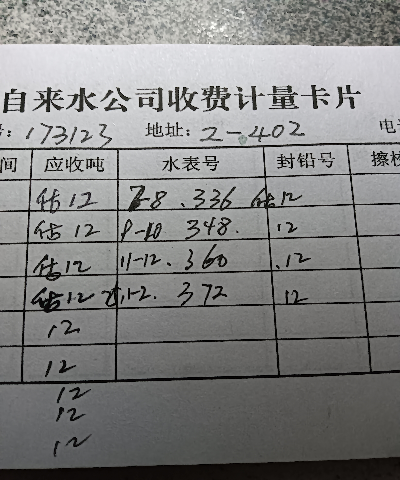 自来水公司收费计量卡片
号: 173123 地址: 2-402 电
间 应收吨 水表号 封铅号 擦
估12 7-8 . 336 估12
估12 9-10 348. 12
估12 11-12. 360 .12
估12 1-2. 372 12
12
12
12
12
12